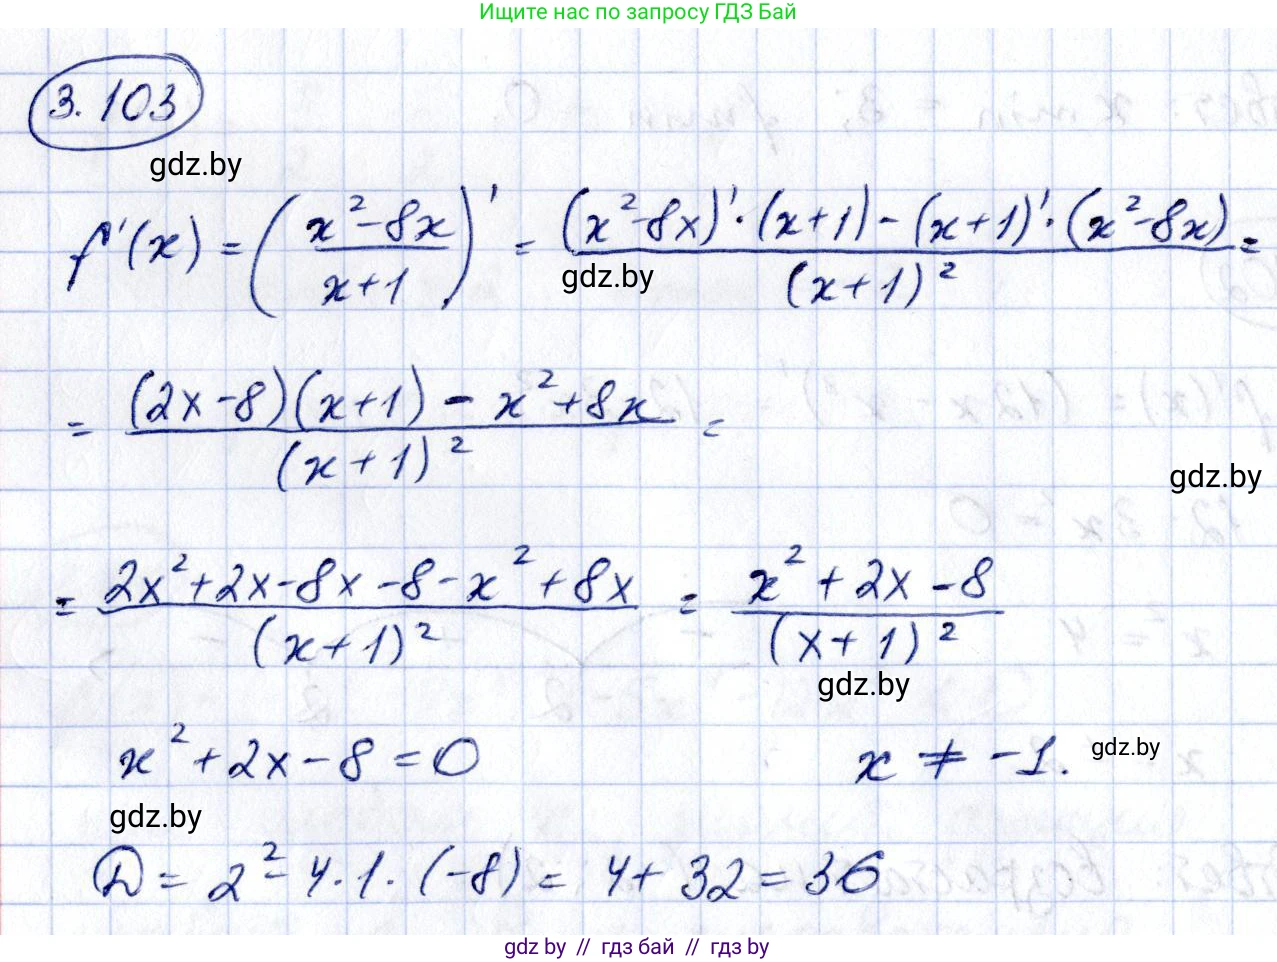 Ищите нас по запросу ГДЗ Бай
3.103
gdz.by
f'(x) = ((x²-8x)/(x+1))' = ((x²-8x)'·(x+1) - (x+1)'·(x²-8x))/(x+1)² =
gdz.by
= ((2x-8)(x+1) - x²+8x)/(x+1)² =
gdz.by
= (2x²+2x-8x-8-x²+8x)/(x+1)² = (x²+2x-8)/(x+1)²
gdz.by
x²+2x-8=0 x ≠ -1. gdz.by
gdz.by
D = 2²-4·1·(-8) = 4+32=36
gdz.by // гдз бай // гдз by